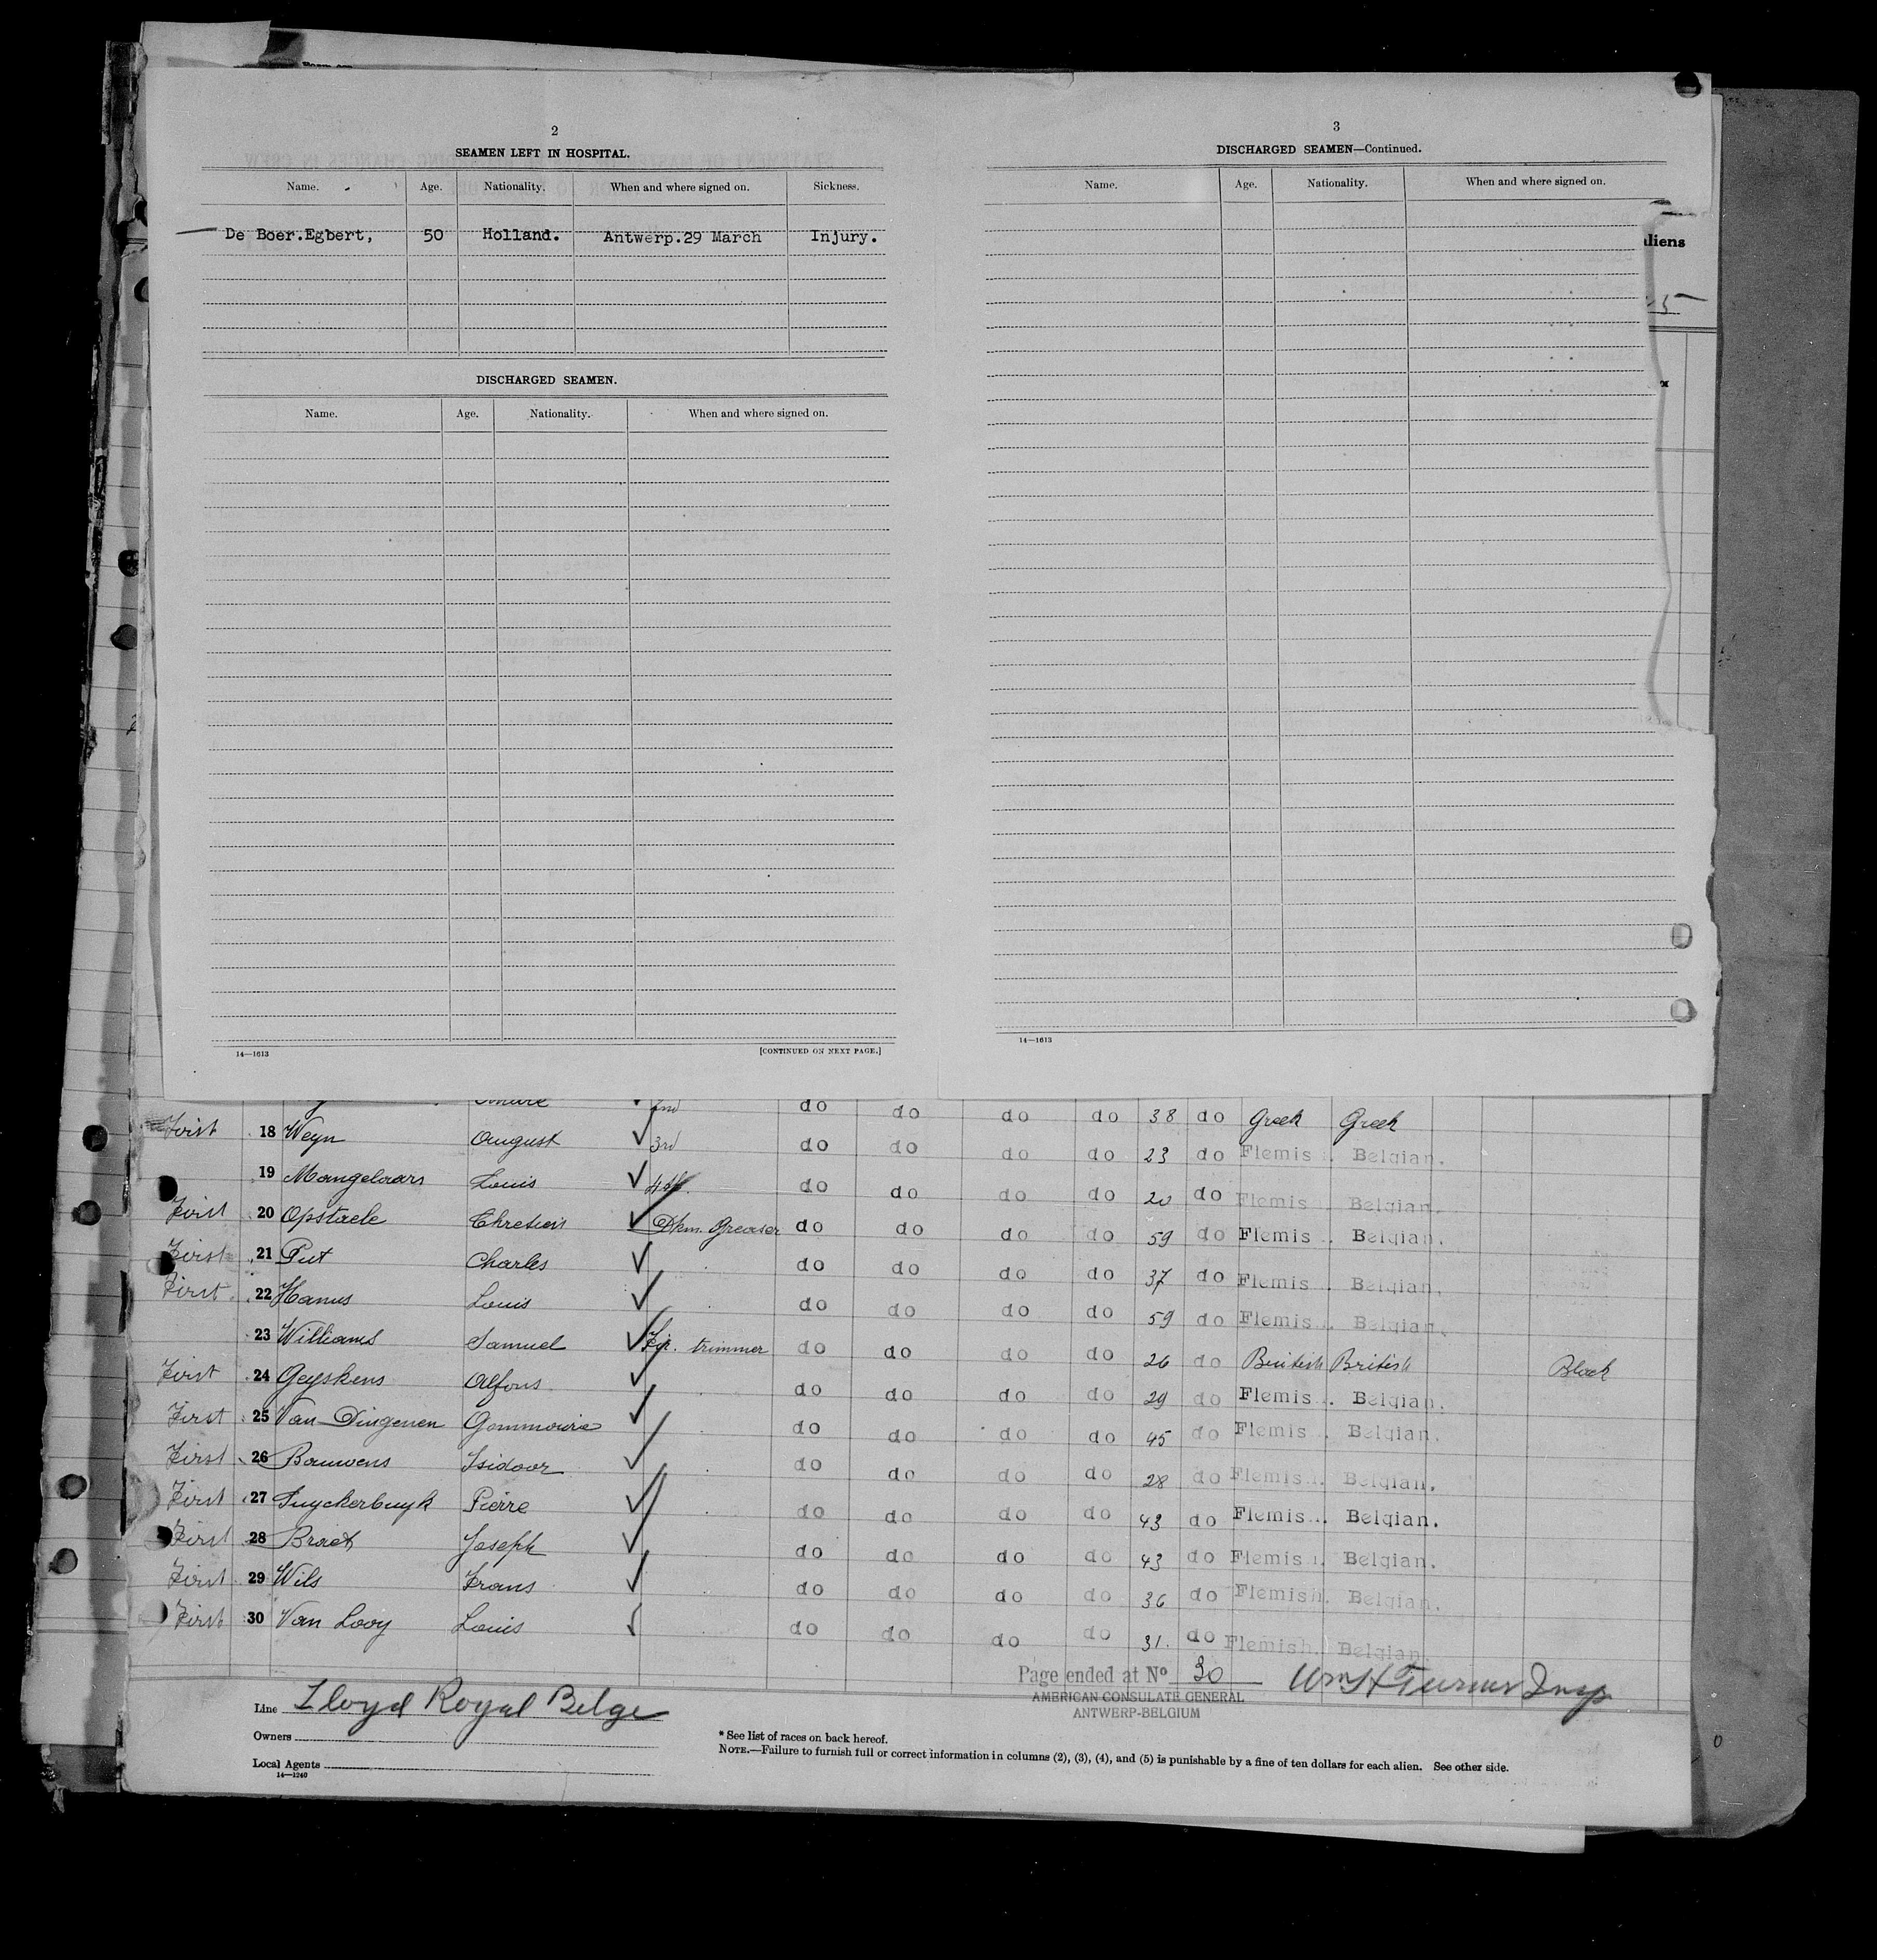 2
SEAMEN LEFT IN HOSPITAL.
Name. Age. Nationality. When and where signed on. Sickness.
De Boer.Egbert, 50 Holland. Antwerp.29 March Injury.
DISCHARGED SEAMEN.
Name. Age. Nationality. When and where signed on.
14—1613 [CONTINUED ON NEXT PAGE.]
3
DISCHARGED SEAMEN—Continued.
Name. Age. Nationality. When and where signed on.
14—1613
aliens
2nd do do do do 38 do Greek Greek
First 18 Weyn August 3rd do do do do 23 do Flemis. Belgian.
19 Mangelaars Louis 4th. do do do do 20 do Flemis. Belgian.
First 20 Opstaele Chretien Dkm. Greaser do do do do 59 do Flemis. Belgian.
First 21 Put Charles do do do do 37 do Flemis. Belgian.
First 22 Hanus Louis do do do do 59 do Flemis. Belgian.
23 Williams Samuel Fir. trimmer do do do do 26 do British British Black
First 24 Geyskens Alfons do do do do 29 do Flemis. Belgian.
First 25 Van Dingenen Gommaire do do do do 45 do Flemis. Belgian.
First 26 Bauwens Isidoor do do do do 28 do Flemis. Belgian.
First 27 Suyckerbuyk Pierre do do do do 43 do Flemis. Belgian.
First 28 Braet Joseph do do do do 43 do Flemis. Belgian.
First 29 Wils Frans do do do do 36 do Flemish. Belgian.
First 30 Van Looy Louis do do do do 31. do Flemish. Belgian.
Page ended at No 30 Wm H Turner Insp
AMERICAN CONSULATE GENERAL
ANTWERP-BELGIUM
Line Lloyd Royal Belge
Owners
Local Agents
14—1240
* See list of races on back hereof.
NOTE.—Failure to furnish full or correct information in columns (2), (3), (4), and (5) is punishable by a fine of ten dollars for each alien. See other side.